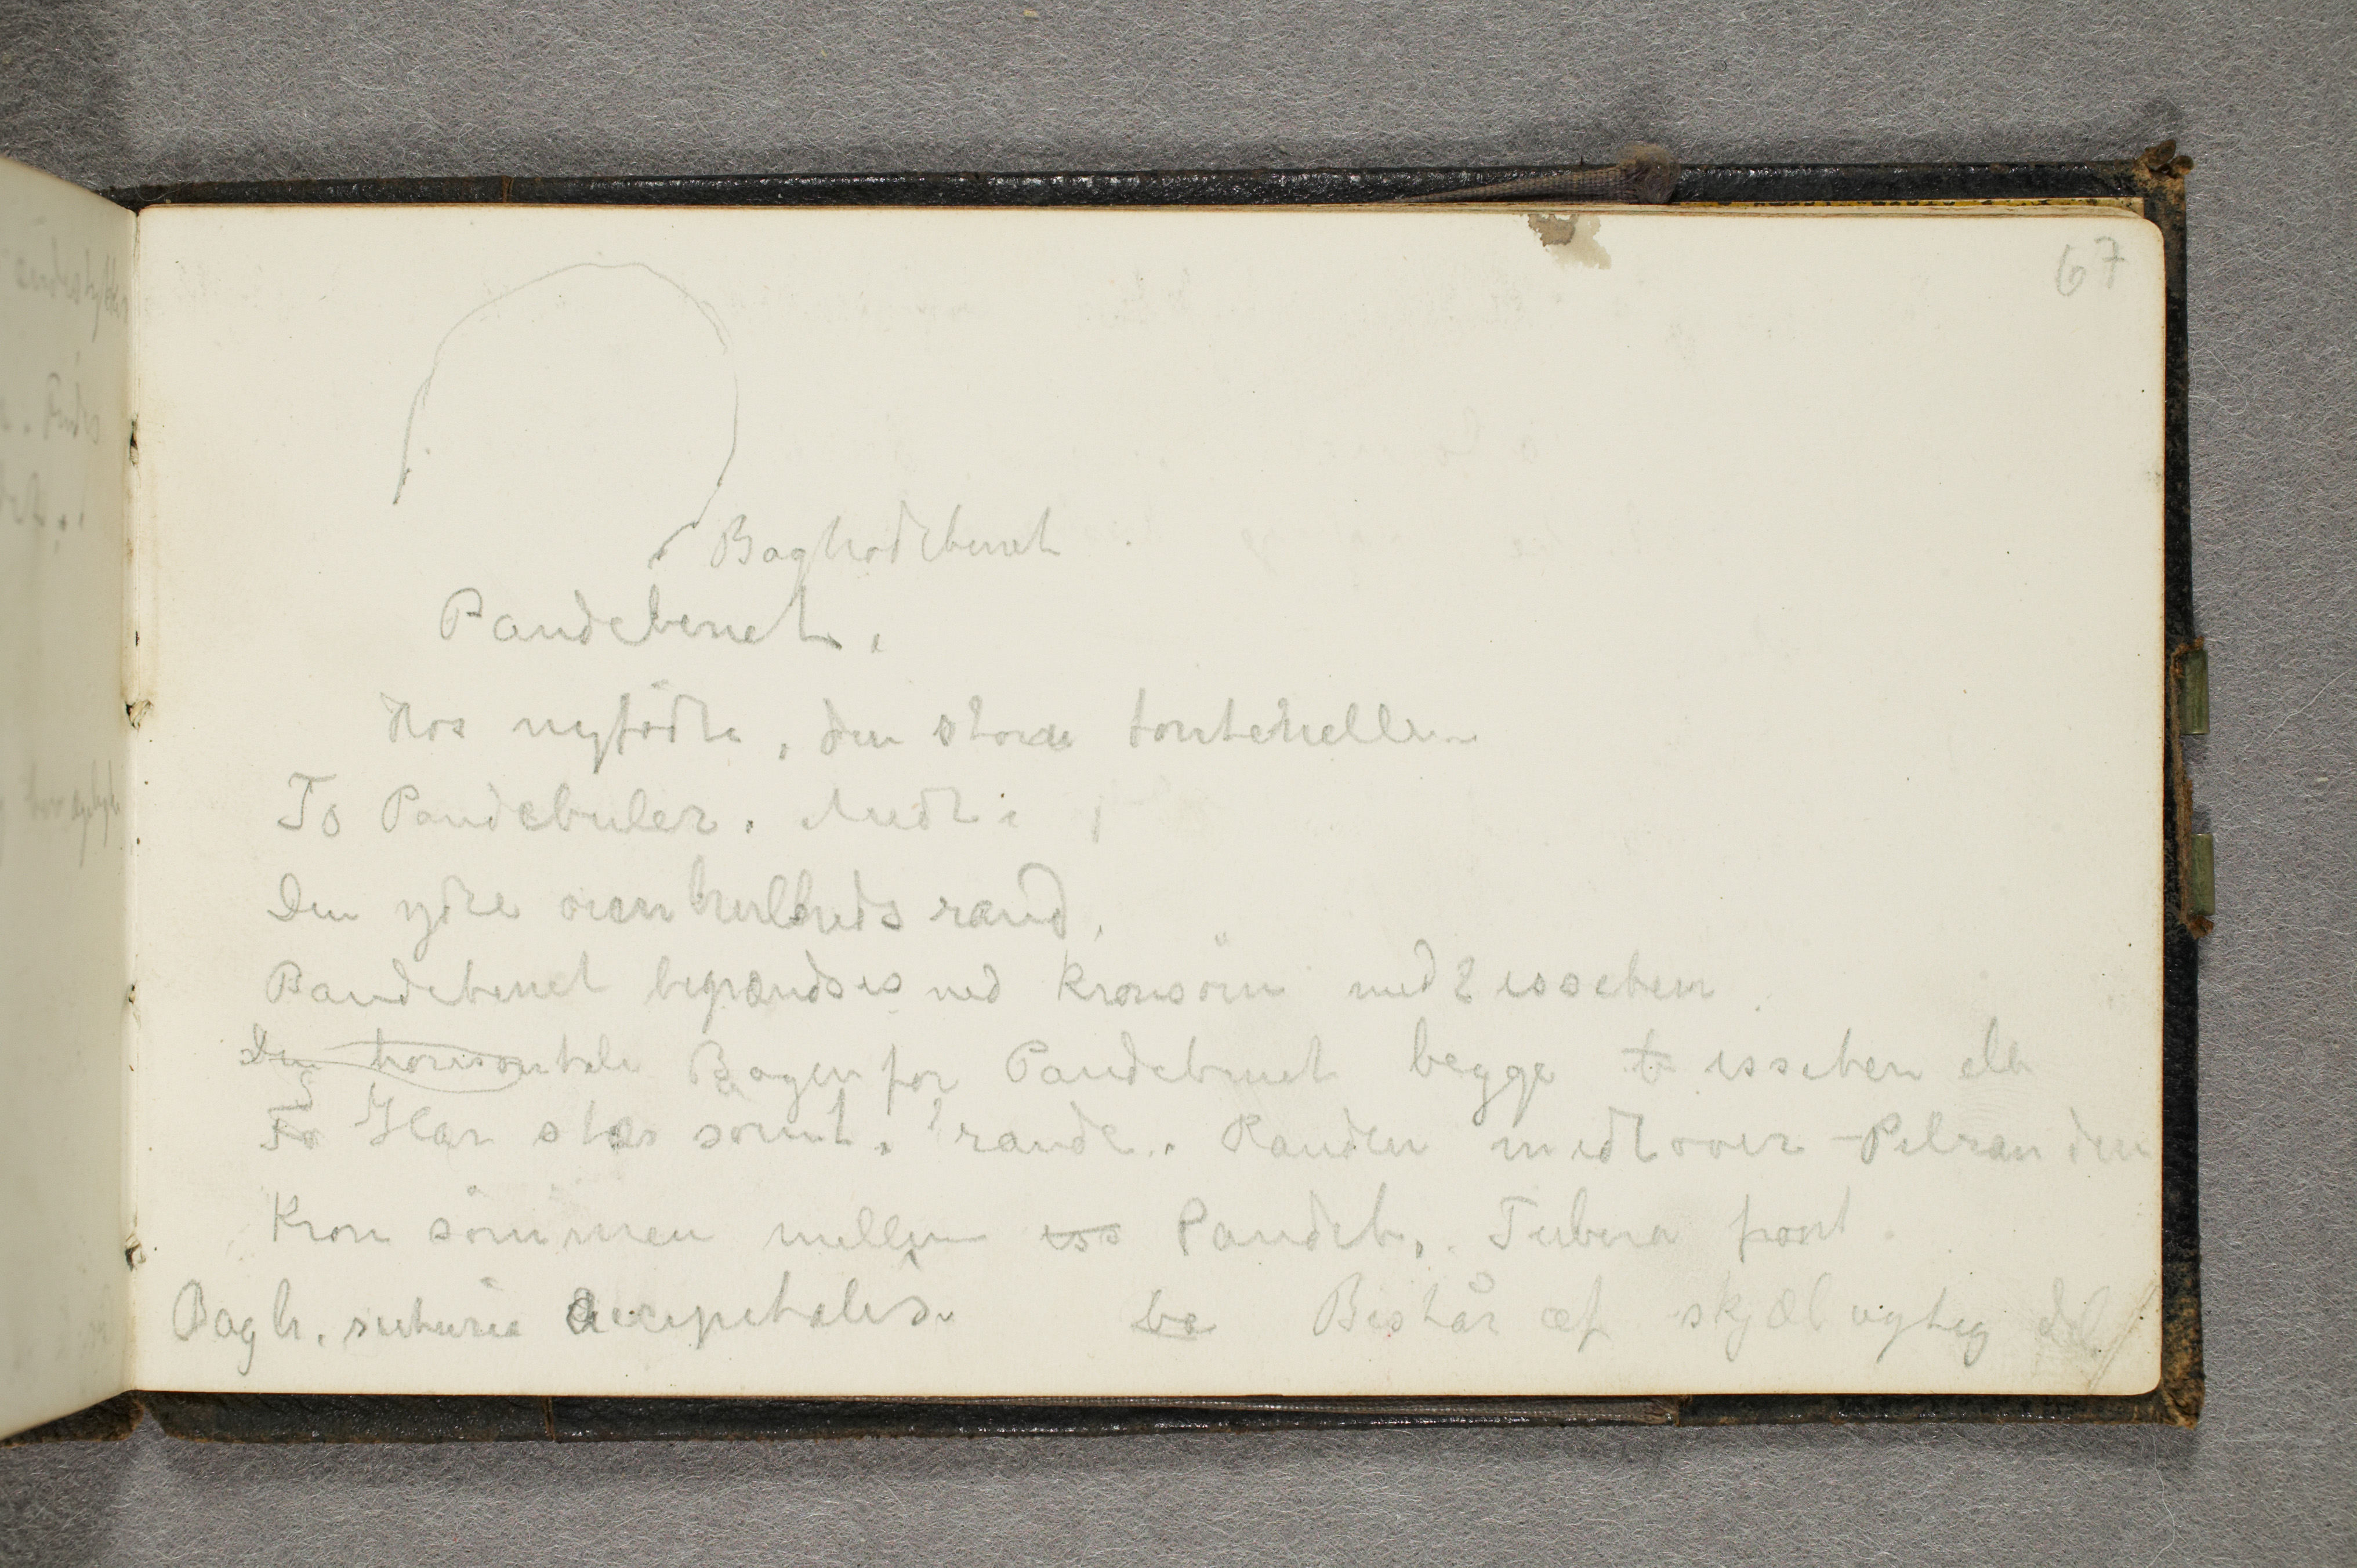 67
Baghodebenet
Pandebenet.
Hos nyfödte, den store fontenellen
To Pandebuler. Midt i
Den ydre øienhulheds rand.
Pandebenet begrændses ved Kronsöm med 2 isseben.
Den horisontale Bagenfor Pandebenet begge t isseben
To Har stor sömt. rande. Randen midtover – Pilranden
Kron sömmen mellem iss Pandeb,. Tubera front.
Bagh. suturia occipitalis. Består af skjælvigtig del